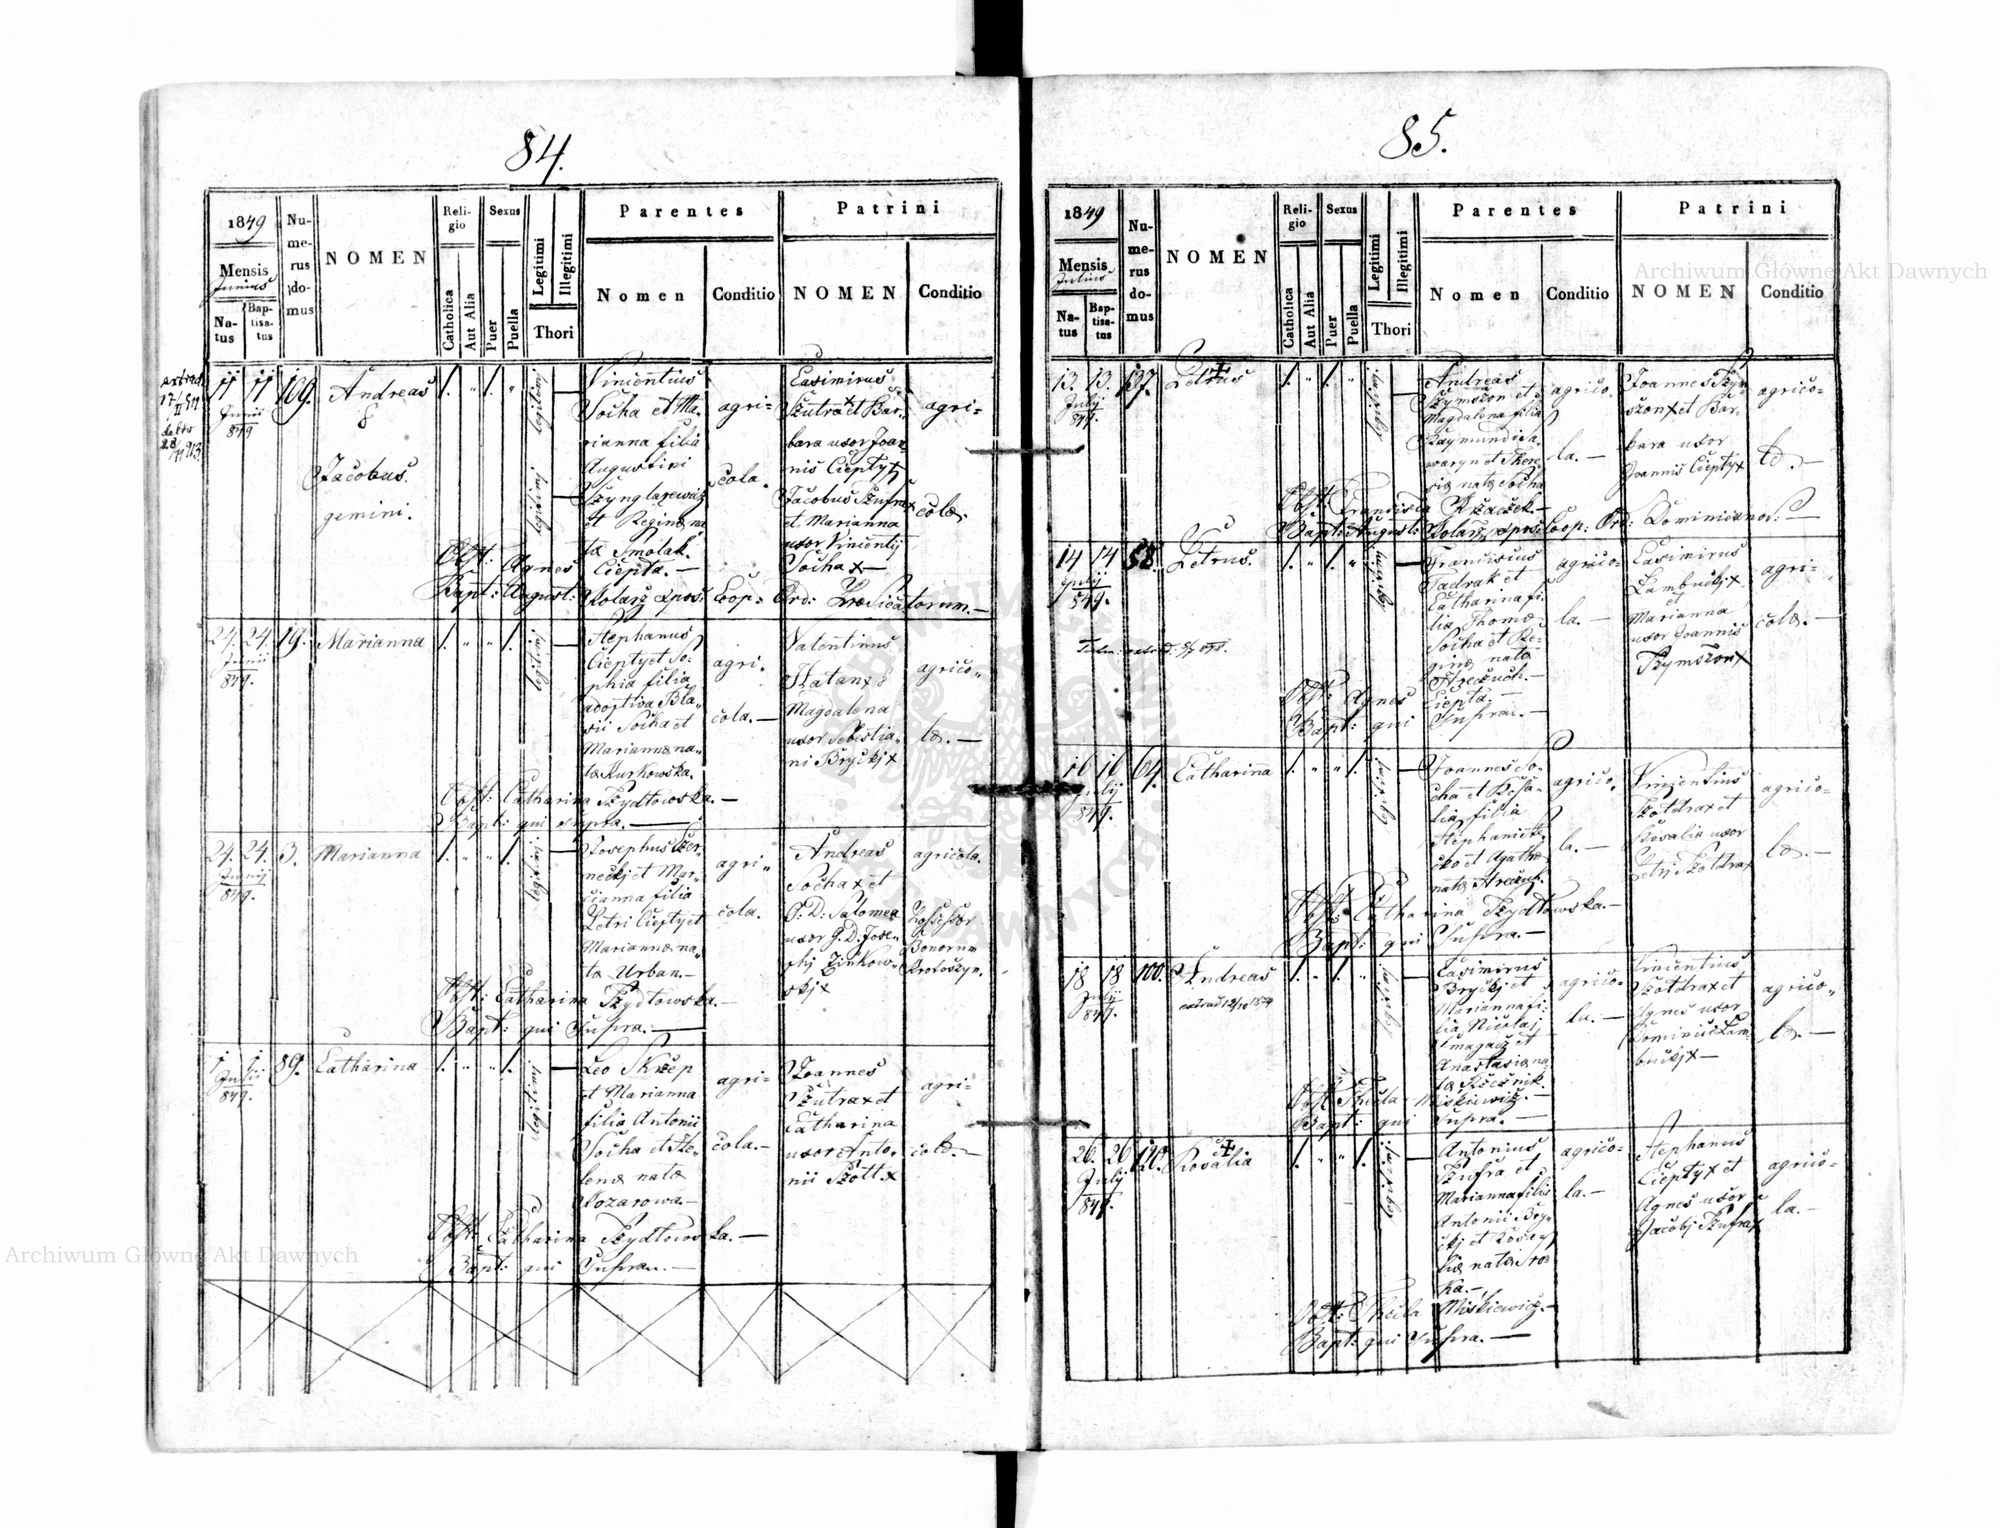 84.
1849
Mensis
Junius
Na-
tus
Bap-
tisa-
tus
Nu-
me-
rus
do-
mus
NOMEN
Reli-
gio
Catholica
Aut Alia
Sexus
Puer
Puella
Legitimi
Illegitimi
Thori
Parentes
Nomen
Conditio
Patrini
NOMEN
Conditio
11 11 109.
Junii
849
Andreas
&
Jacobus.
gemini.
1. " 1. "
legitimi
legitimi
Vincentius
Socha et Ma-
rianna filia
Augustini
et Reginæ na
ta Smolak.
agri-
cola.
Casimirus
Szutra x et Bar-
bara uxor Joan-
nis Ciepły x
Jacobus Szufra x
et Marianna
uxor Vincentij
Socha x —
agri-
colæ.
Obst: Agnes Ciepła. —
Bapt: August: Kolarz expos: Coop: Ord: Prædicatorum. —
24. 24. 19.
Junii
849.
Marianna
1. " " 1.
legitimi
Stephanus
Ciepły et So-
phia filia
adoptiva Bla-
sii Socha et
Mariannæ na-
ta Kurkowska.
agri-
cola. —
Valentinus
Magdalena
uxor Sebastia-
ni Bryckj x
agrico-
læ. —
Obst: Catharina Szydłowska. —
Bapt: qui supra. —
24. 24. 3.
Junij
849.
Marianna
1. " " 1.
legitimi
Josephus Czer-
neckj et Mar-
cianna filia
Petri Ciepły et
Mariannæ na-
ta Urban. —
agri-
cola.
Andreas
Socha x et
G: D: Salomea
uxor G. D. Jose-
phj Zinkow-
skj x
agricola.
Possessor
Bonorum
Krotoszyn.
Obst: Catharina Szydłowska. —
Bapt: qui Supra. —
1 1 89.
Julii
849.
Catharina
1. " " 1.
legitimi
Leo Skrzep
et Marianna
filia Antonii
Socha et He-
lenæ nata
Kozarowa. —
agri-
cola. —
Joannes
Szutra x et
Catharina
uxor Anto-
nii Szott x
agri-
colæ. —
Obst: Catharina Szydłowska. —
Bapt: qui Supra. —
85.
1849
Mensis
Julius
Na-
tus
Bap-
tisa-
tus
Nu-
me-
rus
do-
mus
NOMEN
Reli-
gio
Catholica
Aut Alia
Sexus
Puer
Puella
Legitimi
Illegitimi
Thori
Parentes
Nomen
Conditio
Patrini
NOMEN
Conditio
13. 13. 137.
July
849.
Petrus
1. " 1. "
Andreas
Szymszon et
Magdalena filia
Raymundi
et There-
siæ nata Socha
agrico-
la. —
Joannes Szym-
szon x et Bar-
bara uxor
Joannis Ciepły x
agrico-
læ. —
Obst: Francisca Krzaczek. —
Bapt: August: Kolarz expos: Coop: Ord: Dominicanor: —
14 14 58.
July
849.
Petrus.
1. " 1. "
Franciscus
Jadrak et
Catharina fi-
lia Thomæ
Socha et Re-
ginæ nata
agrico-
la. —
Casimirus
Lambuckj x
et
Marianna
uxor Joannis
Szymszon x
agri-
colæ. —
Obst: Agnes Ciepła. —
Bapt: qui Supra. —
16 16 64.
July
849.
Catharina
1. " " 1.
Joannes So-
cha et Rosa-
lia filia
et Agathæ
agrico-
la. —
Vincentius
Szołdra x et
Rosalia uxor
Petri Szołdra x
agrico-
læ. —
Obst: Catharina Szydłowska. —
Bapt: qui Supra. —
18 18 100.
July
849.
Andreas
1. " 1. "
Casimirus
Bryckj et
Marianna fi-
lia Nicolaj
et
Anastasiæ na-
ta
agrico-
la. —
Vincentius
Szołdra x et
Agnes uxor
Dominici Lam-
buckj x —
agrico-
læ. —
Obst: Thecla Miskiewicz. —
Bapt: qui Supra. —
26. 26 120.
July
849.
Rosalia
1. " " 1.
Antonius
Szufra et
Marianna filia
Antonii Bry-
ckj et Rosa-
liæ nata Sro-
ka. —
agrico-
la. —
Stephanus
Ciepły x et
Agnes uxor
Jacobj Szufra x
agrico-
la. —
Obst: Thecla Miskiewicz. —
Bapt: qui Supra. —
Archiwum Główne Akt Dawnych
Archiwum Główne Akt Dawnych